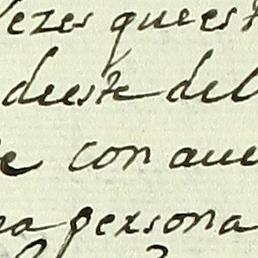 Vezes que est
deeste del
e con que
na persona